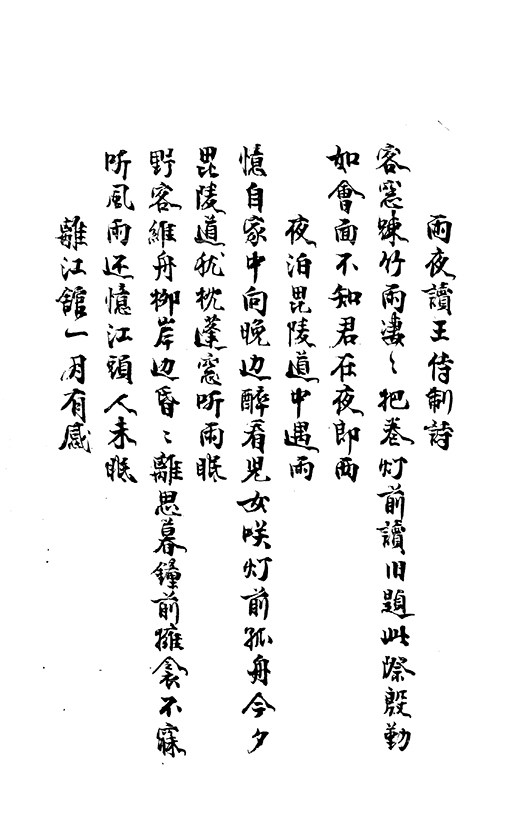 雨夜讀王侍制詩
客窓踈竹雨淒〻把卷灯前讀旧題此際殷勤
如會面不知君在夜郎西
夜泊毘陵道中遇雨
憶自家中向晚边醉看児女咲灯前孤舟今夕
毘陵道犹枕蓬窓听雨眠
野客維舟柳岸边昏〻離思暮鐘前擁衾不寐
听風雨还憶江頭人未眠
離江館一月有感